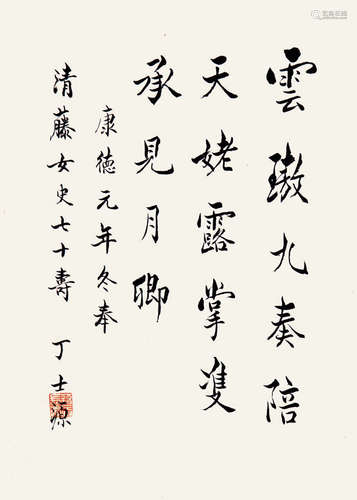 雲璈九奏陪
天姥露掌雙
承見月卿
康德元年冬奉
清藤女史七十壽 丁士源